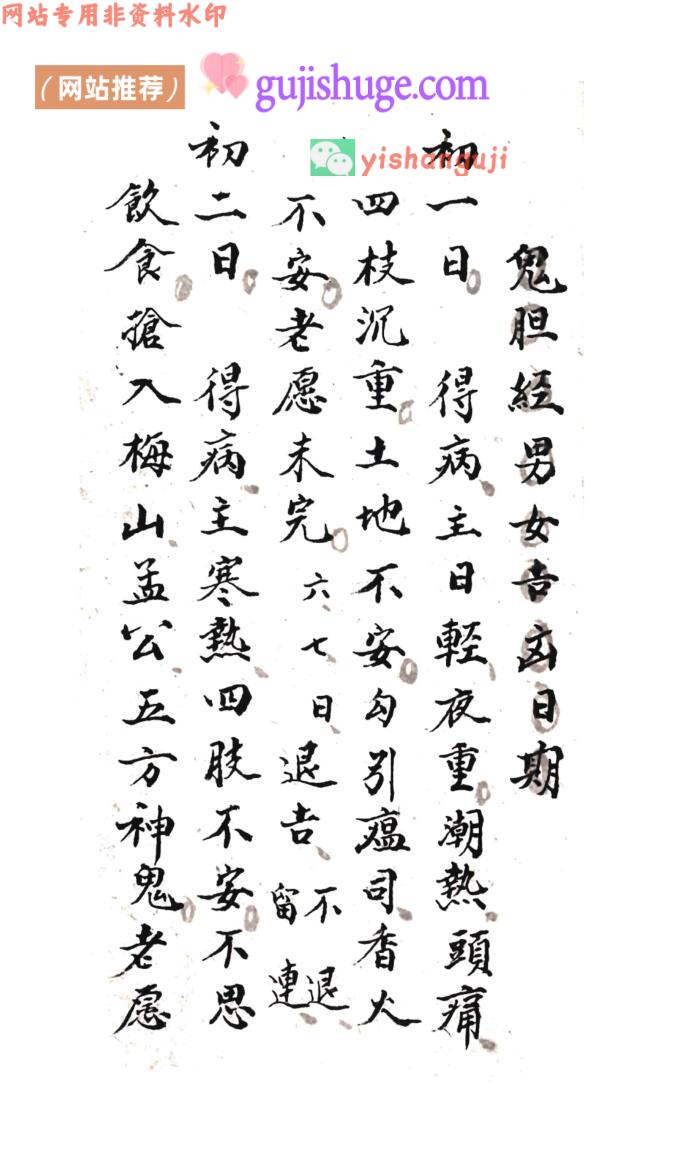 网站专用非资料水印
（网站推荐）
gujishuge.com
yishanguji
鬼胆經男女吉凶日期
初一日 得病主日輕夜重潮熱頭痛
四枝沉重土地不安勾引瘟司香火
不安老愿未完 六七日退吉 不退留連
初二日 得病主寒熱四肢不安不思
飲食搶入梅山孟公五方神鬼老愿